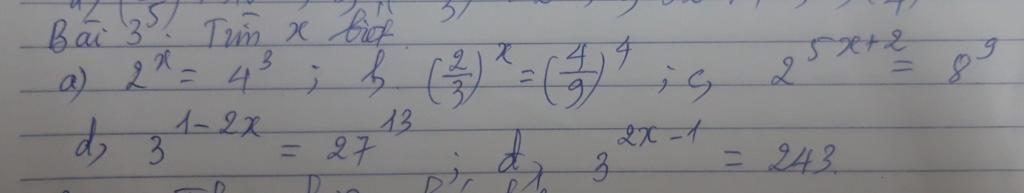 Bài 3: Tìm x biết
a) 2^x = 4^3 ; b, (2/3)^x = (4/9)^4 ; c, 2^{5x+2} = 8^9
d, 3^{1-2x} = 27^{13} ; đ, 3^{2x-1} = 243.